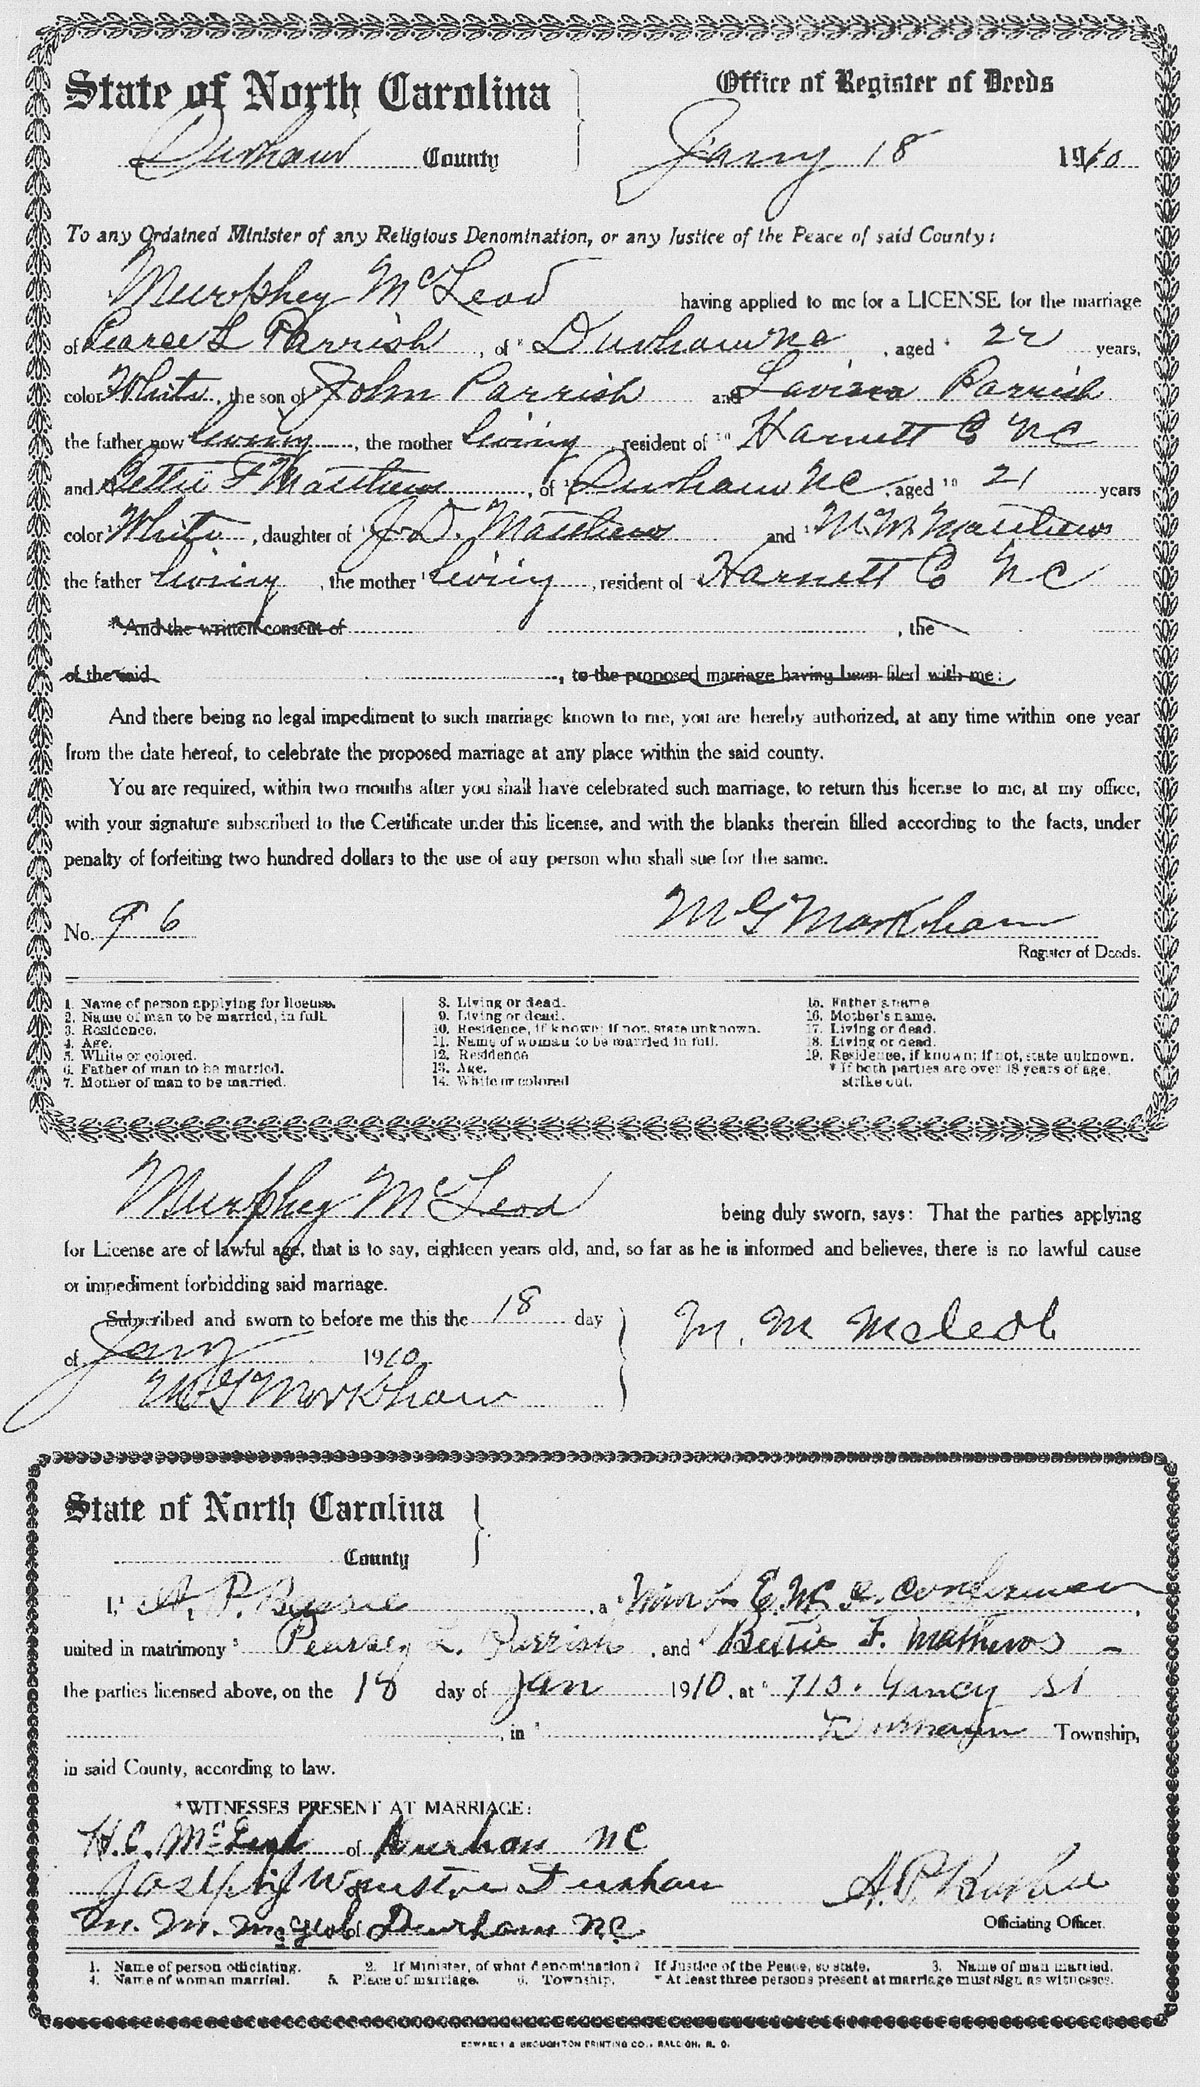 State of North Carolina
Office of Register of Deeds
Durham County
Jany 18 1910
To any Ordained Minister of any Religious Denomination, or any Justice of the Peace of said County:
Murphey McLeod having applied to me for a LICENSE for the marriage
of Pearce L Parrish, of Durham NC, aged 22 years,
color White, the son of John Parrish and Parrish
the father now living, the mother living, resident of Harnett Co NC
and Bettie F Matthews, of Durham NC, aged 21 years
color White, daughter of J. D. Matthews and M. M. Matthews
the father living, the mother living, resident of Harnett Co NC
*And the written consent of , the
of the said , to the proposed marriage having been filed with me:
And there being no legal impediment to such marriage known to me, you are hereby authorized, at any time within one year
from the date hereof, to celebrate the proposed marriage at any place within the said county.
You are required, within two months after you shall have celebrated such marriage, to return this license to me, at my office,
with your signature subscribed to the Certificate under this license, and with the blanks therein filled according to the facts, under
penalty of forfeiting two hundred dollars to the use of any person who shall sue for the same.
No. 96 M G Markham
Register of Deeds.
1. Name of person applying for license.
2. Name of man to be married, in full.
3. Residence.
4. Age.
5. White or colored.
6. Father of man to be married.
7. Mother of man to be married.
8. Living or dead.
9. Living or dead.
10. Residence, if known; if not, state unknown.
11. Name of woman to be married in full.
12. Residence
13. Age.
14. White or colored
15. Father's name
16. Mother's name.
17. Living or dead.
18. Living or dead.
19. Residence, if known; if not, state unknown.
* If both parties are over 18 years of age,
strike out.
Murphey McLeod being duly sworn, says: That the parties applying
for License are of lawful age, that is to say, eighteen years old, and, so far as he is informed and believes, there is no lawful cause
or impediment forbidding said marriage.
Subscribed and sworn to before me this the 18 day
of Jany 1910
M. M McLeod
M G Markham
State of North Carolina
County
I, A. P. , a M E
united in matrimony Pearsey L. Parrish, and Bettie F. Mathews
the parties licensed above, on the 18 day of Jan 1910, at 713. Yancy St
, in Durham Township,
in said County, according to law.
*WITNESSES PRESENT AT MARRIAGE:
H. C. McLeod of Durham NC
Joseph Durham
M. M. McLeod of Durham NC.
A. P.
Officiating Officer.
1. Name of person officiating. 2. If Minister, of what denomination? If Justice of the Peace, so state. 3. Name of man married.
4. Name of woman married. 5. Place of marriage. 6. Township. * At least three persons present at marriage must sign as witnesses.
EDWARDS & BROUGHTON PRINTING CO., RALEIGH, N. C.